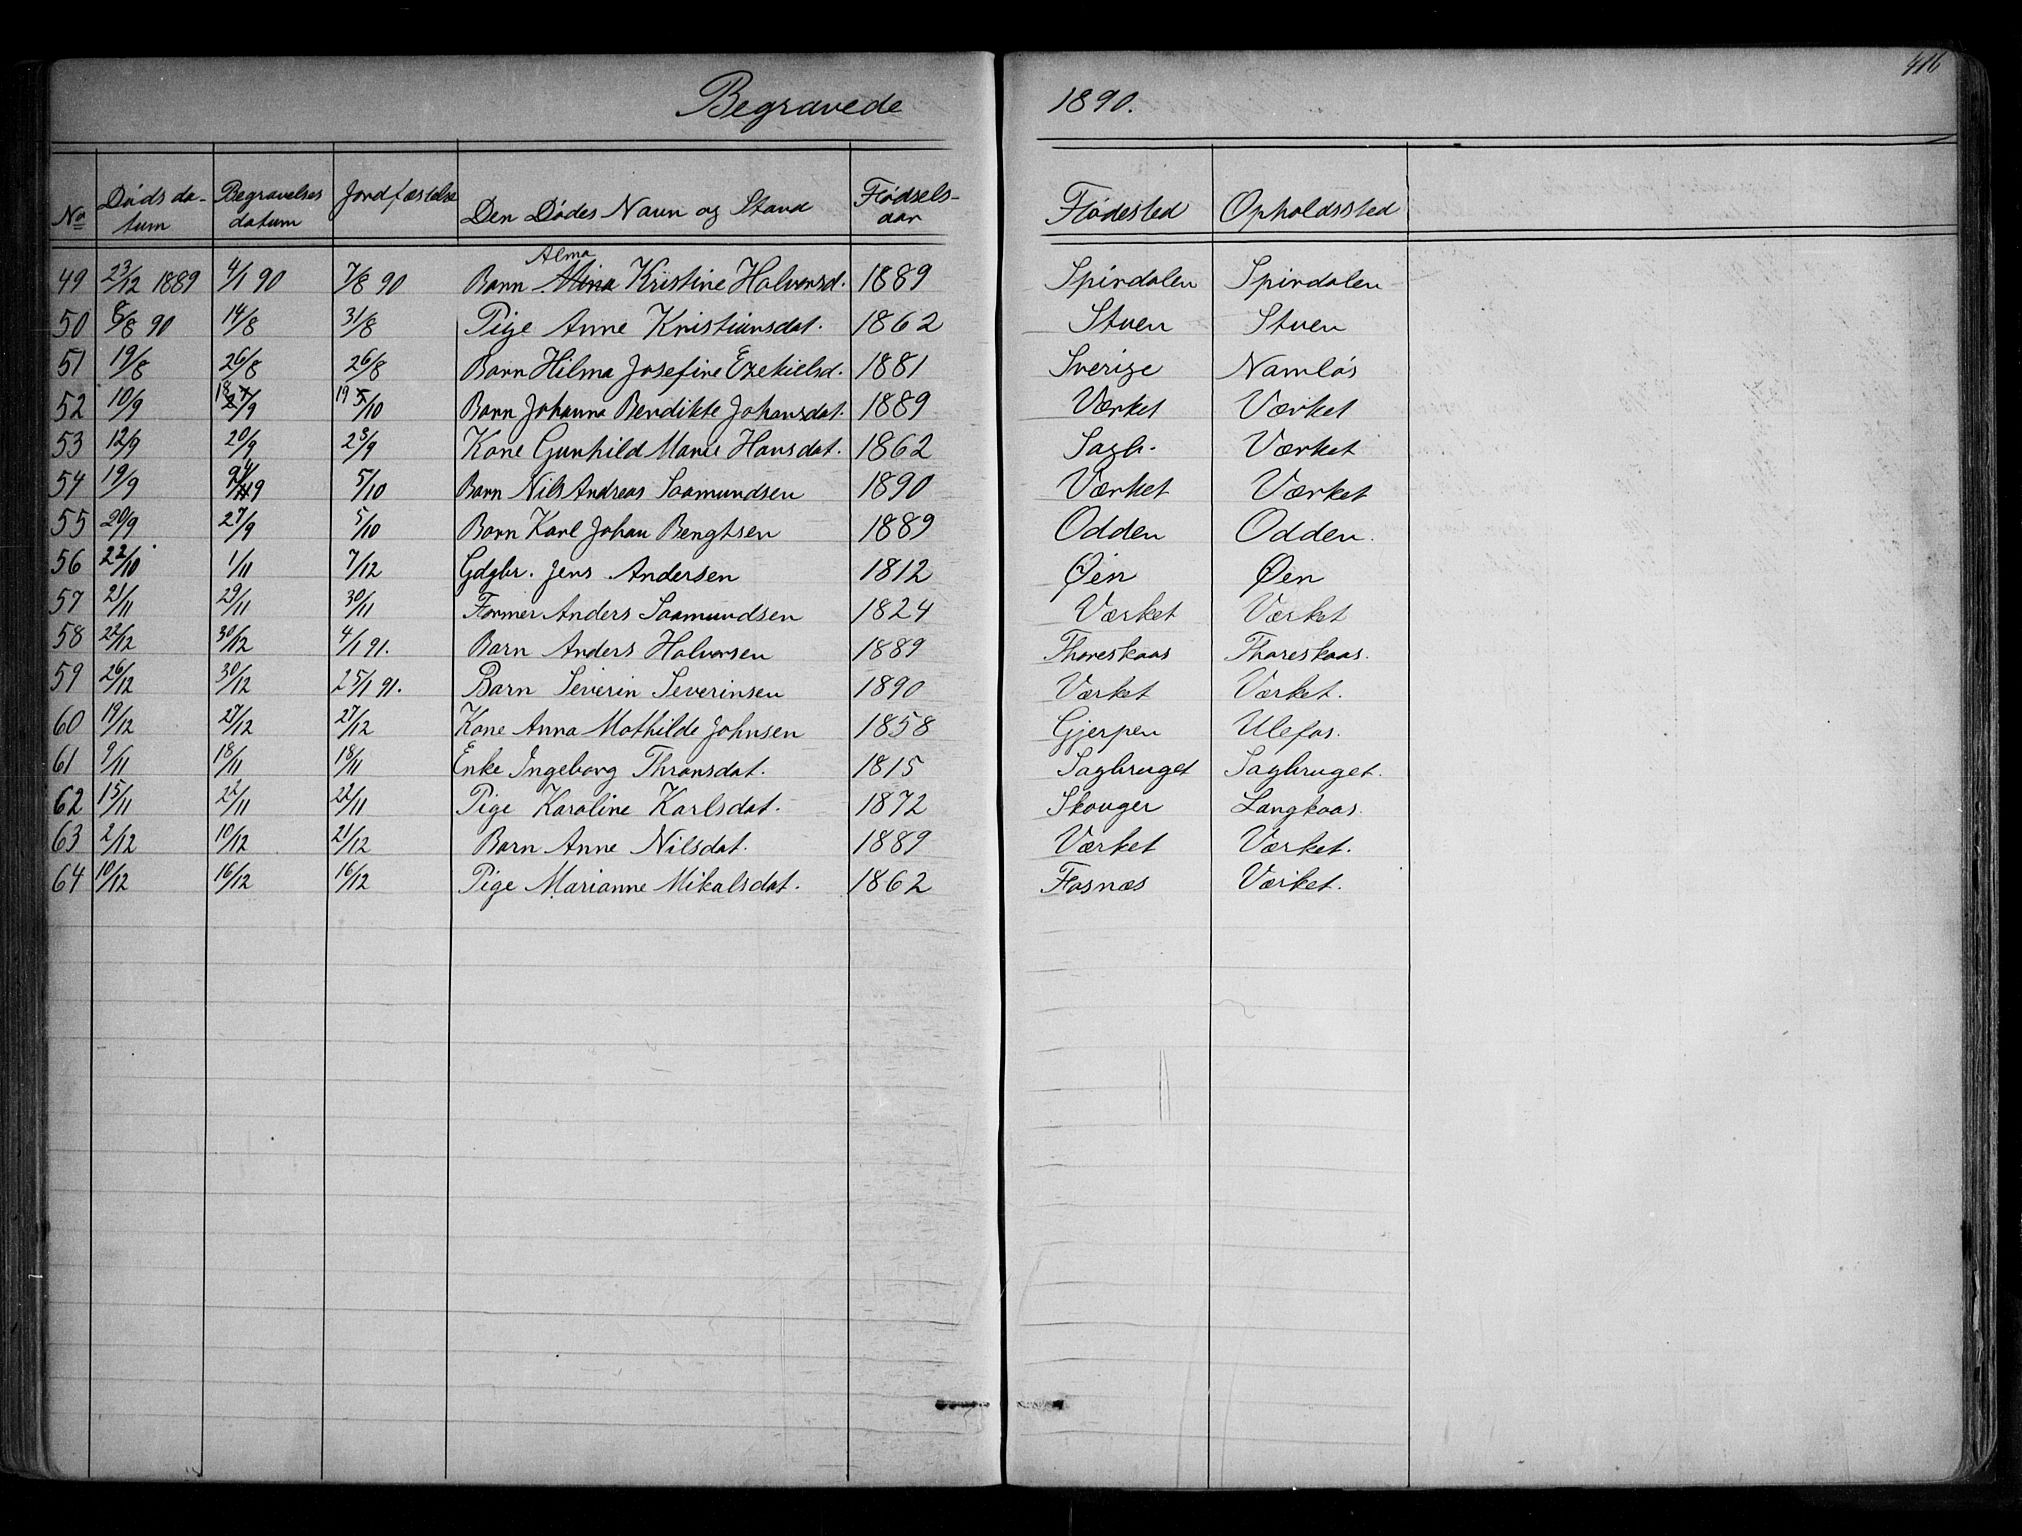 416
Begravede 1890.
No Døds da- Begravelses Jordfæstelse Den Dødes Navn og Stand Fødsels- Fødested Opholdssted
tum datum aar
Alma
49 23/12 1889 4/1 90 7/8 90 Barn Alina Kristine Halvorsd. 1889 Spirdalen Spirdalen
50 8/8 90 14/8 31/8 Pige Anne Kristiansdat. 1862 Stuen Stuen
51 19/8 26/8 26/8 Barn Hilma Josefine Ezekielsd. 1881 Sverige Namløs
52 10/9 18/9 19 5/10 Barn Johanna Bendikte Johansdat. 1889 Værket Værket
53 12/9 20/9 23/9 Kone Gunhild Marie Hansdat. 1862 Sagb. Værket
54 19/9 5/10 Barn Nils Andreas Saamundsen 1890 Værket Værket
55 20/9 27/9 5/10 Barn Karl Johan Bengtsen 1889 Odden Odden.
56 22/10 1/11 7/12 Gdgbr. Jens Andersen 1812 Øien Øen
57 21/11 29/11 30/11 Former Anders Saamundsen 1824 Værket Værket
58 22/12 30/12 4/1 91. Barn Anders Halvorsen 1889 Thoreskaas Thoreskaas.
59 26/12 30/12 25/1 91. Barn Severin Severinsen 1890 Værket Værket.
60 19/12 27/12 27/12 Kone Anna Mathilde Johnsen 1858 Gjerpen Ulefos.
61 9/11 18/11 18/11 Enke Ingeborg Thronsdat. 1815 Sagbruget Sagbruget.
62 15/11 22/11 22/11 Pige Karoline Karlsdat. 1872 Skouger Langkaas.
63 2/12 10/12 21/12 Barn Anne Nilsdat. 1889 Værket Værket.
64 10/12 16/12 16/12 Pige Marianne Mikalsdat. 1862 Fosnæs Værket.